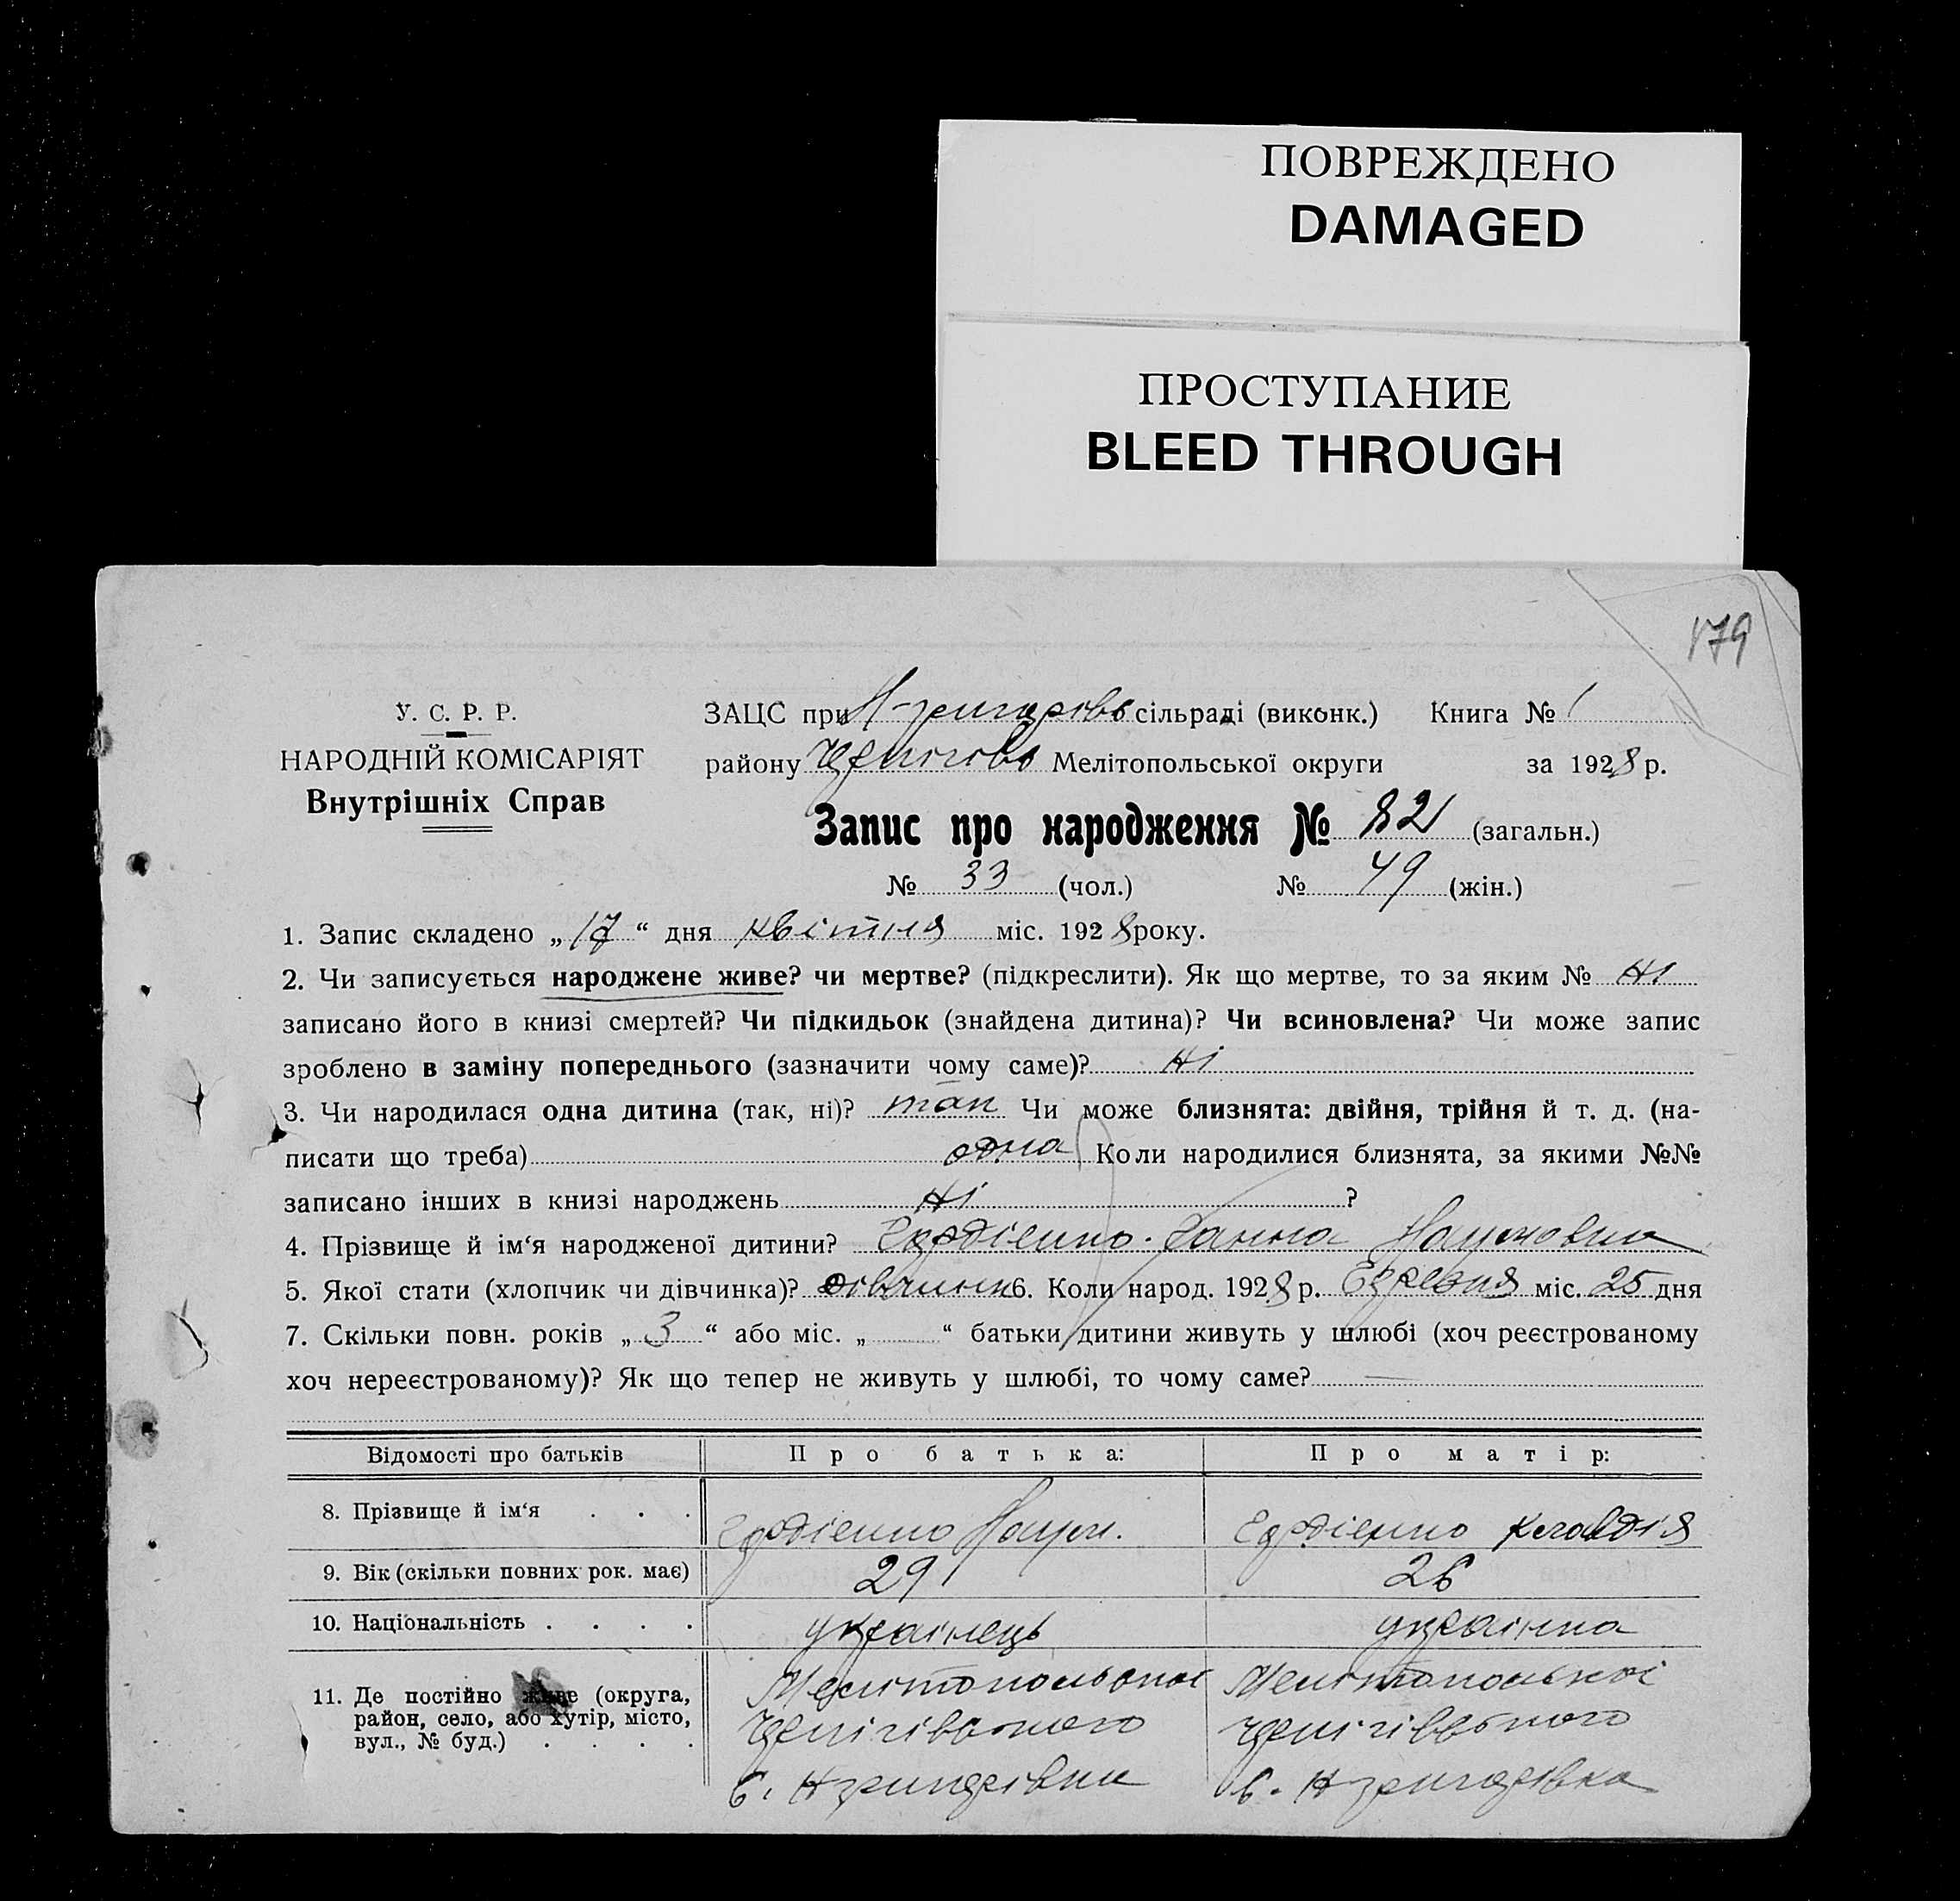 ПОВРЕЖДЕНО
DAMAGED
ПРОСТУПАНИЕ
BLEED THROUGH
179
У. С. Р. Р.
НАРОДНІЙ КОМІСАРІЯТ
Внутрішніх Справ
ЗАЦС при сільраді (виконк.) Книга № 1
району Чернігівс Мелітопольської округи за 1928 р.
Запис про народження № 82 (загальн.)
№ 33 (чол.) № 49 (жін.)
1. Запис складено „17“ дня квітня міс. 1928 року.
2. Чи записується народжене живе? чи мертве? (підкреслити). Як що мертве, то за яким № Ні
записано його в книзі смертей? Чи підкидьок (знайдена дитина)? Чи всиновлена? Чи може запис
зроблено в заміну попереднього (зазначити чому саме)? Ні
3. Чи народилася одна дитина (так, ні)? так Чи може близнята: двійня, трійня й т. д. (на-
писати що треба) одна Коли народилися близнята, за якими №№
записано інших в книзі народжень Ні ?
4. Прізвище й ім‘я народженої дитини? Гордієнко Ганна Наумовна
5. Якої стати (хлопчик чи дівчинка)? дівчинка 6. Коли народ. 1928 р. міс. 25 дня
7. Скільки повн. років „3“ або міс. „ “ батьки дитини живуть у шлюбі (хоч реєстрованому
хоч нереєстрованому)? Як що тепер не живуть у шлюбі, то чому саме? —
Відомості про батьків Про батька: Про матір:
8. Прізвище й ім‘я . . . Гордієнко Наум. Гордієнко Клавдія
9. Вік (скільки повних рок. має) 29 26
10. Національність . . . . українець українка
11. Де постійно живе (округа, район, село, або хутір, місто, вул., № буд.) . . . .
Мелітопольської Мелітопольської
Чернігівського Чернігівського
с. с.